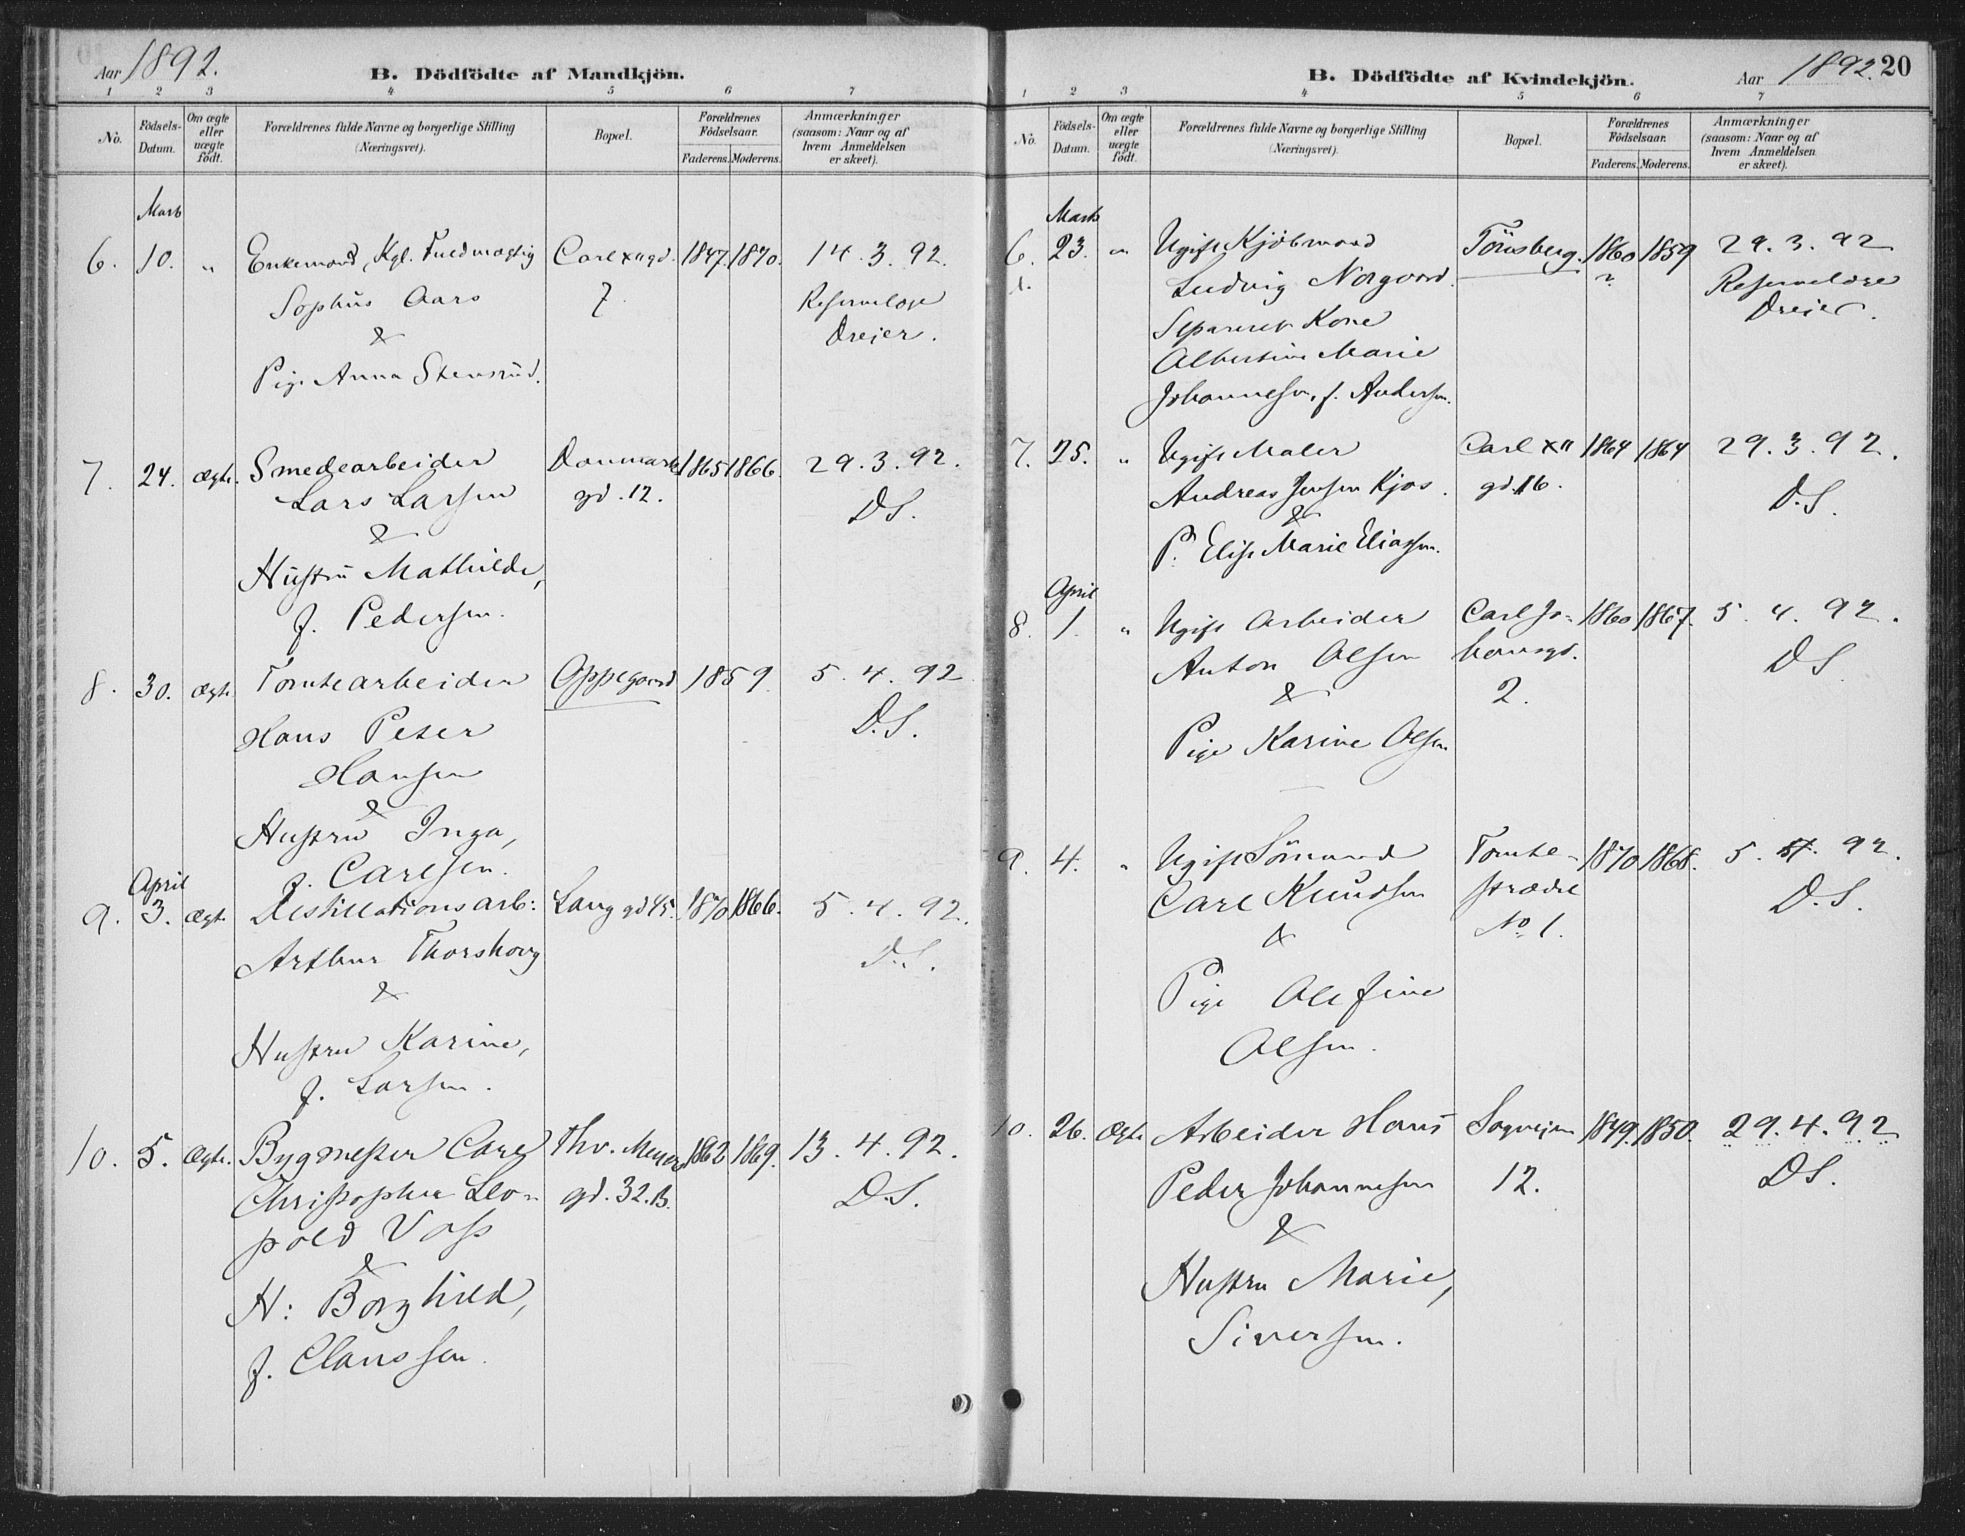 Aar 1892.
B. Dödfödte af Mandkjön.
1 2 3 4 5 6 7
No.
Födsels-
Datum.
Om ægte
eller
uægte
født.
Forældrenes fulde Navne og borgerlige Stilling
(Næringsvei).
Bopæl.
Forældrenes
Födselsaar.
Faderens. Moderens.
Anmærkninger
(saasom: Naar og af
hvem Anmeldelsen
er skeet).
Marts
6. 10. " Enkemand, Kgl. Fuldmægtig Carl XII gd. 1847. 1870. 14.3.92.
Sophus Aars 7. Reservelæge
& Dreier.
Pige Anna Stensrud.
7. 24. Ægte. Smedearbeider Danmarks 1865 1866. 29.3.92.
Lars Larsen gd. 12. D.S.
&
Hustru Mathilde,
f. Pedersen.
8. 30. Ægte Tomtearbeider Oppegaard 1859 5.4.92
Hans Peter D.S.
Hansen
&
Hustru Inga,
f. Carlsen.
April
9. 3. Ægte Distillationsarb: Langgd 45. 1870 1866. 5.4.92.
Arthur Thorshaug D.S.
&
Hustru Karine,
f. Larsen.
10. 5. Ægte. Bygmester Carl Thv. Meyers 1862 1869. 13.4.92.
Christopher Leo- gd. 32.B. D.S.
pold Voss
&
H: Borghild,
f. Clanssen.
B. Dödfödte af Kvindekjön.
Aar 1892. 20
1 2 3 4 5 6 7
No.
Födsels-
Datum.
Om ægte
eller
uægte
født.
Forældrenes fulde Navne og borgerlige Stilling
(Næringsvei).
Bopæl.
Forældrenes
Födselsaar.
Faderens. Moderens.
Anmærkninger
(saasom: Naar og af
hvem Anmeldelsen
er skeet).
Marts
6. 23. " Ugift Kjøbmand Tönsberg. 1860 1859 29.3.92
Ludvig Norgaard. ? Reservelæge
Separeret Kone Dreier.
Albertine Marie
Johannesen, f. Andersen.
7. 25. " Ugift Maler Carl XII 1864 1864 29.3.92.
Andreas Jensen Kjos. gd. 16. D.S.
&
P. Elise Marie Eliassen.
April
8. 1. " Ugift Arbeider Carl Jo- 1860 1867. 5.4.92.
Anton Olsen hansgd. D.S.
& 2.
Pige Karine Olsen
9. 4. " Ugift Sömand Tomte- 1870 1868. 5.4.92.
Carl Knudsen strædet D.S.
& No 1.
Pige Olefine
Olsen.
10. 26. Ægte Arbeider Hans Sagveien 1849. 1850. 29.4.92
Peder Johannesen 12. D.S.
&
Hustru Marie,
Siversen.